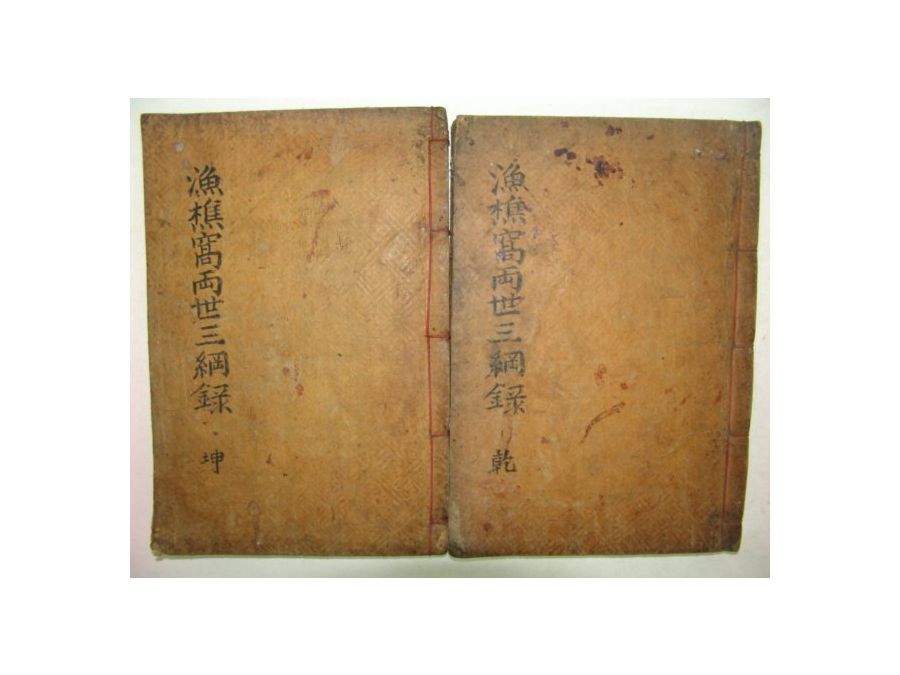 漁樵窩兩世三綱錄
乾
漁樵窩兩世三綱錄
坤